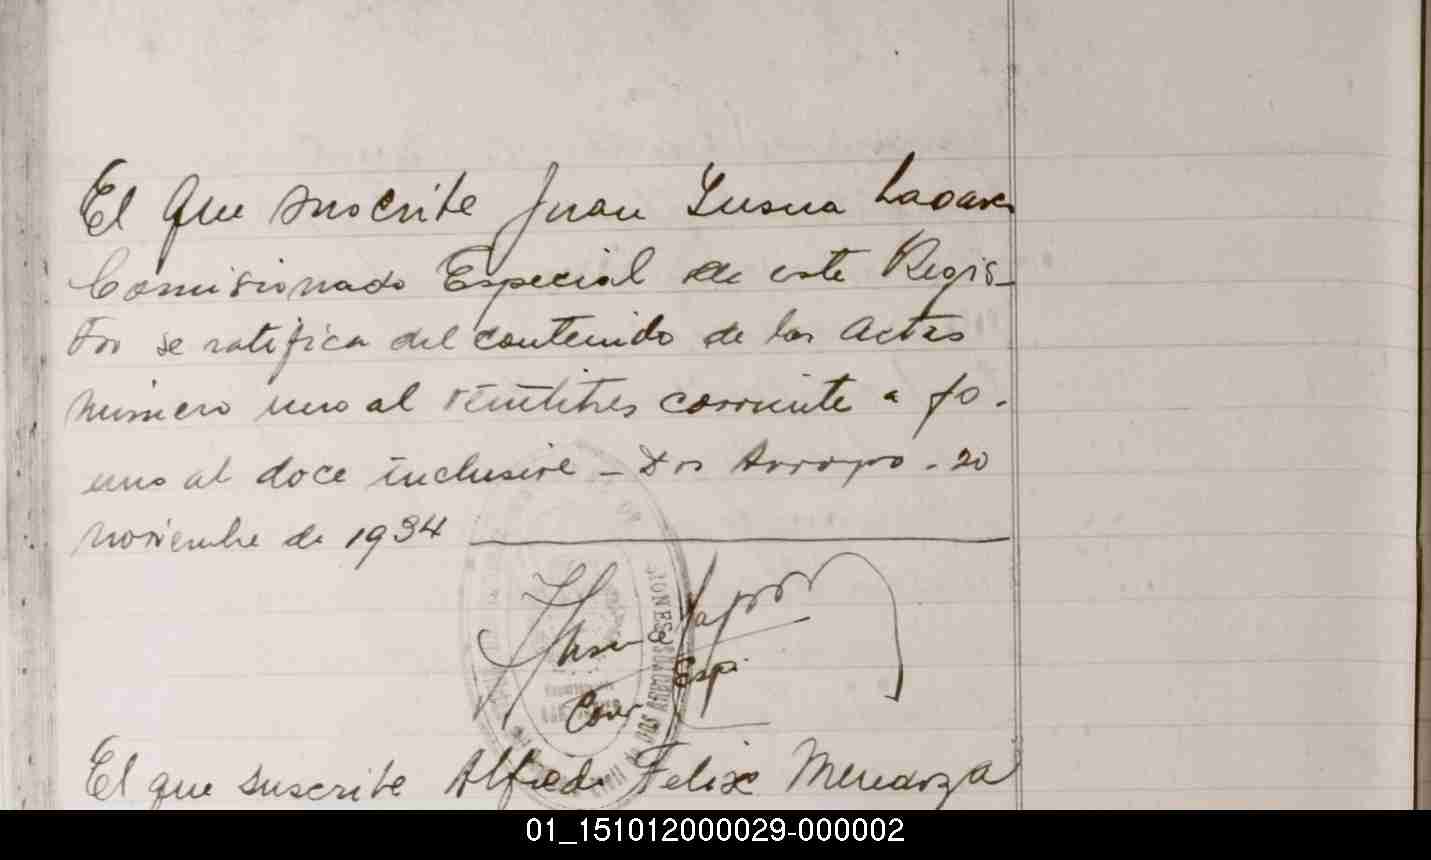 El que suscribe Juan Susua Lapares
Comisionado Especial de este Regis-
tro se ratifica del contenido de las Actas
número uno al veintitres corriente a fo.
uno al doce inclusive - Dos Arroyo - 20
noviembre de 1934
Com Espi
El que suscribe Alfredo Felix Mendoza
01_151012000029-000002